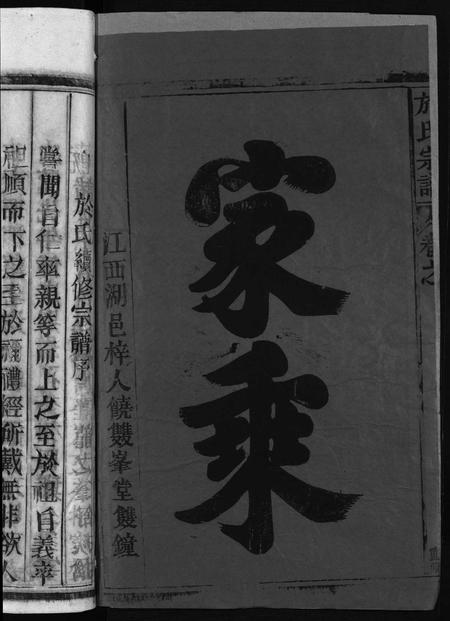 於氏宗譜八卷之
家乘
江西湖邑梓人饒雙峯堂雙鐘
於氏續修宗譜序
嘗聞自仁率親等而上之至於祖自義率
祖順而下之至於禰禮經所載無非欲人